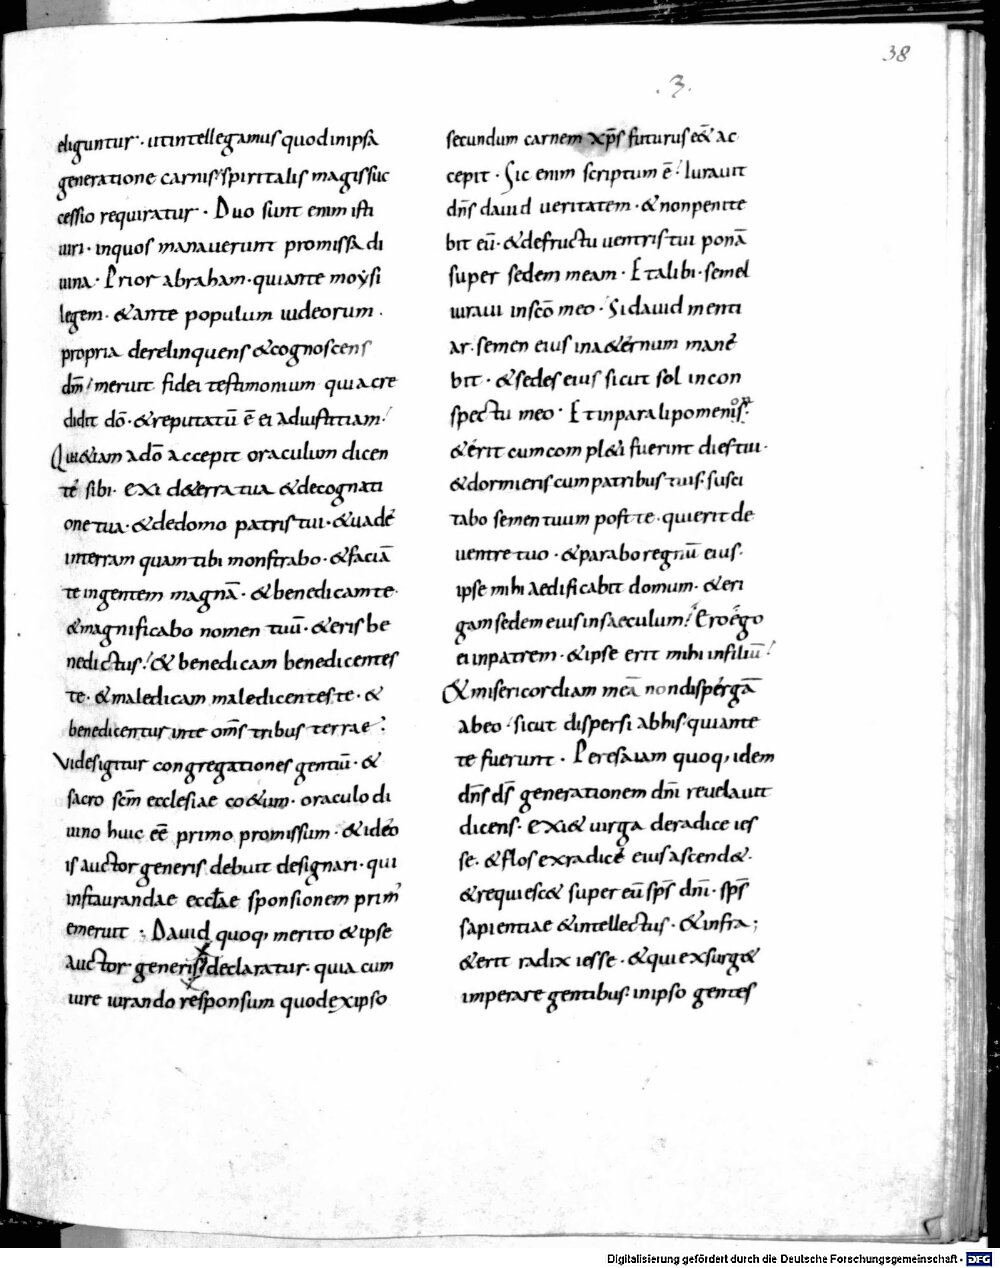 38
.3.
eliguntur · ut intellegamus quod in ipsa
generatione carnis spiritalis magis suc
cessio requiratur · Duo sunt enim isti
uiri · in quos manauerunt promissa di
uina · Prior abraham · qui ante moysi
legem · & ante populum iudeorum ·
propria derelinquens & cognoscens
dm̅ meruit fidei testimonium quia cre
didit do̅ · & reputatu̅ e̅ ei ad iustitiam
Qui & iam a do̅ accepit oraculum dicen
te̅ sibi · exi d& erra tua & de cognati
one tua · & de domo patris tui · & uade
in terram quam tibi monstrabo · & facia̅
te in gentem magna̅ · & benedicam te ·
& magnificabo nomen tuu̅ · & eris be
nedictus & benedicam benedicentes
te · & maledicam maledicentes te · &
benedicentur in te om̅s tribus terrae
Vides igitur congregationes gentiu̅ · &
sacro sc̅m ecclesiae co&um · oraculo di
uino huic ee̅ primo promissum · & ideo
is auctor generis debuit designari · qui
instaurandae eccl̅ae sponsionem prim'
emeruit · Dauid quoq; merito & ipse
auctor generis declaratur · quia cum
iure iurando responsum quod ex ipso
secundum carnem xp̅s futurus e&̅ ac
cepit · Sic enim scriptum e̅ Iurauit
dn̅s dauid ueritatem · & non penite
bit eu̅ · & de fructu uentris tui pona̅
super sedem meam · Et alibi · semel
iuraui in sc̅o meo · Si dauid menti
ar · semen eius in a&ernum mane
bit · & sedes eius sicut sol in con
spectu meo · Et in paralipomenis
& erit cum compl&i fuerint dies tui ·
& dormieris cum patribus tuis · susci
tabo semen tuum post te · qui erit de
uentre tuo · & parabo regnu̅ eius ·
ipse mihi aedificabit domum · & eri
gam sedem eius in saeculum Ero ego
ei in patrem · & ipse erit mihi in filiu̅
& misericordiam mea̅ non disperga̅
ab eo sicut dispersi ab his qui ante
te fuerunt · Per esaiam quoq; idem
dn̅s ds̅ generationem dn̅i reuelauit
dicens · exi& uirga de radice ies
se · & flos ex radice eius ascend& ·
& requiesc& super eu̅ sp̅s dn̅i · sp̅s
sapientiae & intellectus · & infra ;
& erit radix iesse · & qui exsurg&
imperare gentibus · in ipso gentes
Digitalisierung gefördert durch die Deutsche Forschungsgemeinschaft - DFG